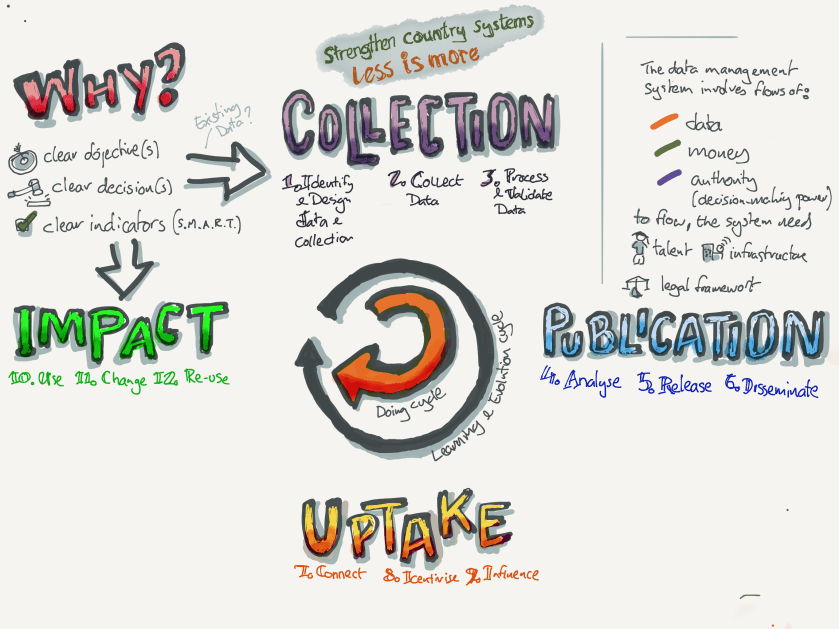 Strengthen country systems
Less is more
WHY?
Existing
Data?
clear objective(s)
clear decision(s)
clear indicators (S.M.A.R.T.)
COLLECTION
1. Identify
& Design
Data &
Collection
2. Collect
Data
3. Process
& Validate
Data
The data management
system involves flows of:
data
money
authority
(decision-making power)
to flow, the system need
talent
infrastructure
legal framework
IMPACT
10. Use 11. Change 12. Re-use
Doing cycle
Learning & Evolution cycle
PUBLICATION
4. Analyse 5. Release 6. Disseminate
UPTAKE
7. Connect 8. Icentivise 9. Influence